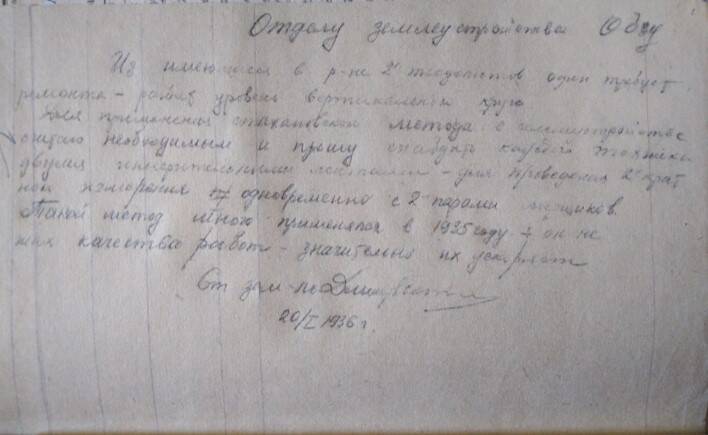 Отделу землеустройства Обзу
Из имеющихся в р-не 2х теодолитов один требует
ремонта - разбит уровень вертикального круга
Для применения стахановского метода в землеустройстве
считаю необходимым и прошу снабдить каждого техника
двумя измерительными лентами - для проведения 2х крат
ной измерения одновременно с 2 парами мерщиков.
Такой метод мною применялся в 1935 году + он не
качества работ - значительно их ускоряет
Ст зем-
20/I 1936 г.